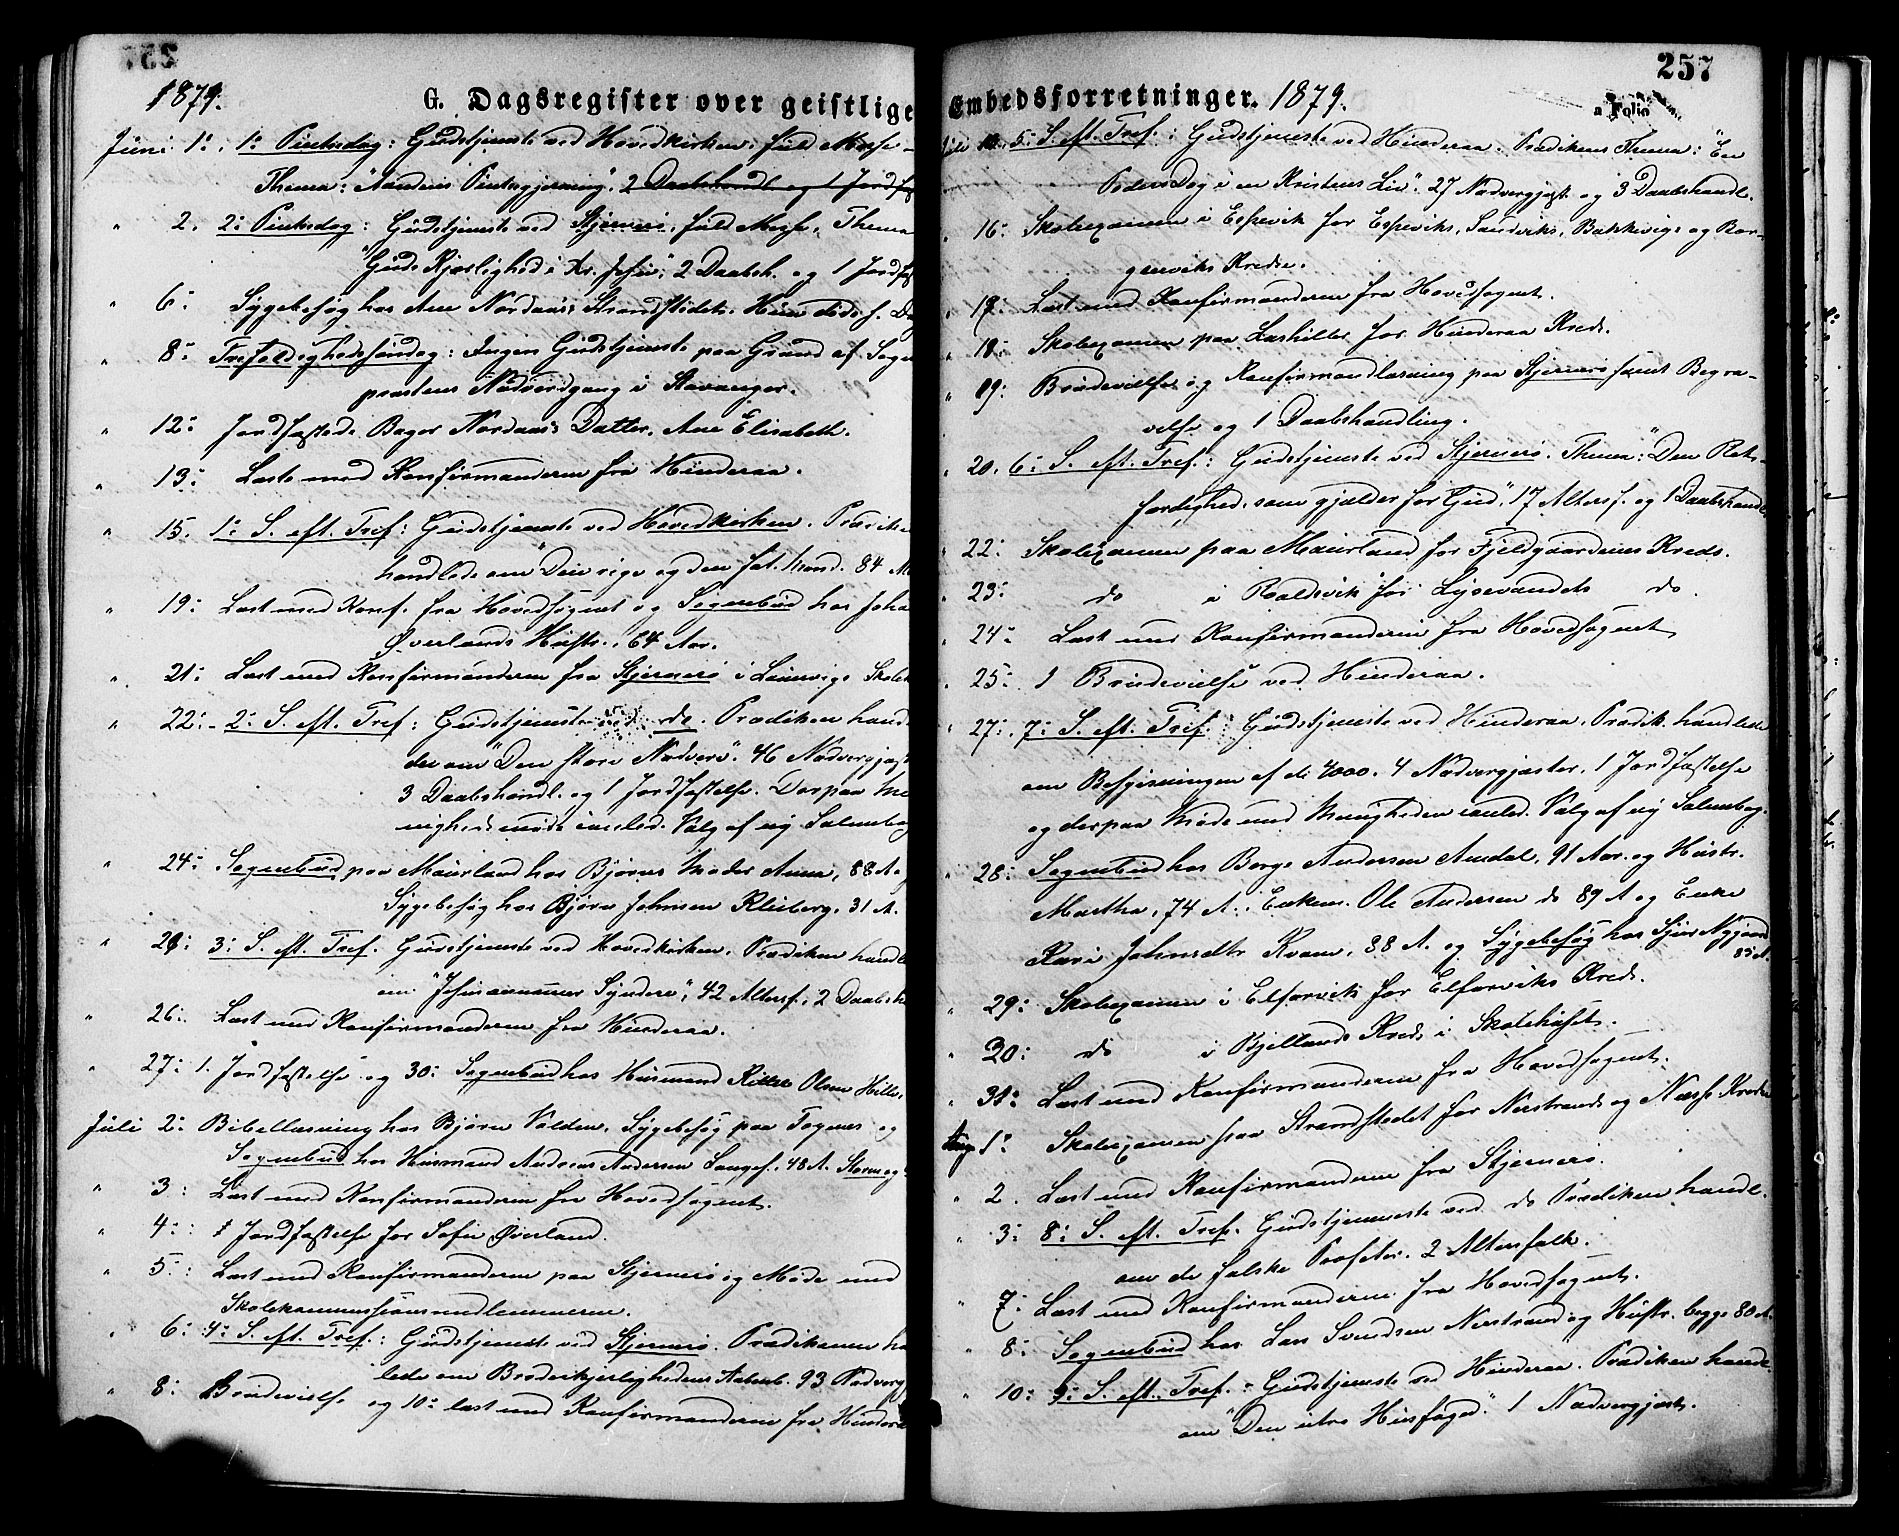 257
1879.
G. Dagsregister over geistlige
Juni 1: 1: Pintsedag: Gudstjeneste ved Hovedkirken: fuld Messe-
Thema: "Aandens Pintsegjerning". 2 Daabshandl og 1 Jordf
" 2. 2: Pintsedag: Gudstjeneste ved Stjernerö, fuld Messe. Thema
"Guds Kjærlighed i Kr. Jesu"; 2 Daabsh. og 1 Jordf
" 6: Sygebesøg hos Ane Nordaas Strandstedet. Hun døde s. D
" 8: Trefoldighedssøndag: Ingen Gudstjeneste paa Grund af Sogne
præstens Nadvergang i Stavanger.
" 12: Jordfæstede Bager Nordaas Datter, Ane Elisabeth.
" 13: Læste med Konfirmanderne fra Hinderaa.
" 15. 1: S. eft. Tref: Gudstjeneste ved Hovedkirken. Prædike
handlede om "Den rige og den fat. Mand. 84
" 19: Læst med Konf. fra Hovedsognet og Sognebud hos Joha
Øverlands Hustr., 64 Aar.
" 21: Læst med Konfirmanderne fra Stjernerö i Skole
" 22: 2: S. eft. Tref: Gudstjeneste ved do. Prædiken hand
de om "Den store Nadvere". 46 Nadvergjæst
3 Daabshandl. og 1 Jordfæstelse. Derpaa Me
nighedsmøde i anled. Valg af ny Salmebog
" 24: Sognebud paa Maurland hos Bjørns Moder Anna, 88 A.
Sygebesøg hos Bjørn Johnsen Kleiberg, 31 A.
" 29: 3: S. eft. Tref. Gudstjeneste ved Hovedkirken. Prædiken handl
om "Jesus annammer Syndere", 42 Altersf., 2 Daabsh
" 26: Læst med Konfirmanderne fra Hinderaa.
" 27: 1. Jordfæstelse og 30: Sognebud hos Husmand Olsen Hille.
Juli 2: Bibellæsning hos Bjørn Valden, Sygebesøg paa og
Sognebud hos Husmand Andreas Andersen 48 A.
" 3: Læst med Konfirmanderne fra Hovedsognet.
" 4: 1 Jordfæstelse for Sofie Øverland.
" 5: Læst med Konfirmanderne paa Stjernerö og Møde med
Skolekommissionsmedlemmerne.
" 6: 4: S. eft. Tref.: Gudstjeneste ved Stjernerö. Prædikenen ha
lede om Broderkjerlighedens 93 Nadverg
" 8: Brudevielse og 10: læst med Konfirmanderne fra Hinderaa
257
Embedsforretninger. 1879.
a Folio
5: S. eft. Tref.: Gudstjeneste ved Hinderaa. Prædikens Thema: "En
Dag i en Kristens Liv". 27 Nadvergjæst. og 3 Daabshandl.
" 16: Skoleexamen i Espevik for Espeviks, Sandviks, og
Kredse.
" 17: Læst med Konfirmanderne fra Hovedsognet.
" 18: Skoleexamen paa for Hinderaa Kreds.
" 19: Brudevielse og Konfirmandlæsning paa Stjernerö samt Begra-
velse og 1 Daabshandling.
" 20. 6: S. eft. Tref.: Gudstjeneste ved Stjernerö. Thema: "Den Ret-
færdighed, som gjælder for Gud". 17 Altersf. og 1 Daabshandl
" 22: Skoleexamen paa Maurland for Fjeldgaardenes Kreds.
" 23: do i for Lysevandets do.
" 24: Læst med Konfirmanderne fra Hovedsognet
" 25: 1 Brudevielse ved Hinderaa.
" 27: 7: S. eft. Tref.: Gudstjeneste ved Hinderaa. Prædik. handlede
om Bespisningen af de 4000. 4 Nadvergjæster, 1 Jordfæstelse
og derpaa Møde med Menigheden i anled. Valg af ny Salmebog.
" 28: Sognebud hos Børge Andersen Amdal, 91 Aar og Hustr.
Martha, 74 A.; Enkem. Ole Andersen do 89 A og Enke
Kari Johnsdtr Kvam, 88 A. og Sygebesøg hos Sjur Nygaard
85 A.
" 29: Skoleexamen i Elfarvik for Elfarviks Kreds.
" 30: do i Bjellands Kreds i Skolehuset.
" 31: Læst med Konfirmanderne fra Hovedsognet.
Aug. 1: Skoleexamen paa Strandstedet for Nerstrands og Næss Kredse
" 2. Læst med Konfirmanderne fra Stjernerö.
" 3: 8: S. eft. Tref. Gudstjeneste ved do Prædiken handl.
om de falske Profeter. 2 Altersfolk.
" 7: Læst med Konfirmanderne fra Hovedsognet.
" 8: Sognebud hos Lars Svendsen Nerstrand og Hustr. begge 80 A.
" 10: 9: S. eft. Tref.: Gudstjeneste ved Hinderaa. Prædiken handl.
om "Den utro Husfoged". 1 Nadvergjæst.